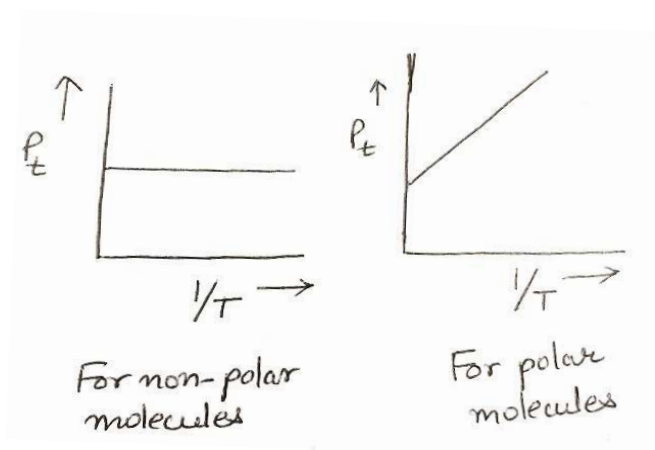 P_t
1/T
For non-polar
molecules
P_t
1/T
For polar
molecules